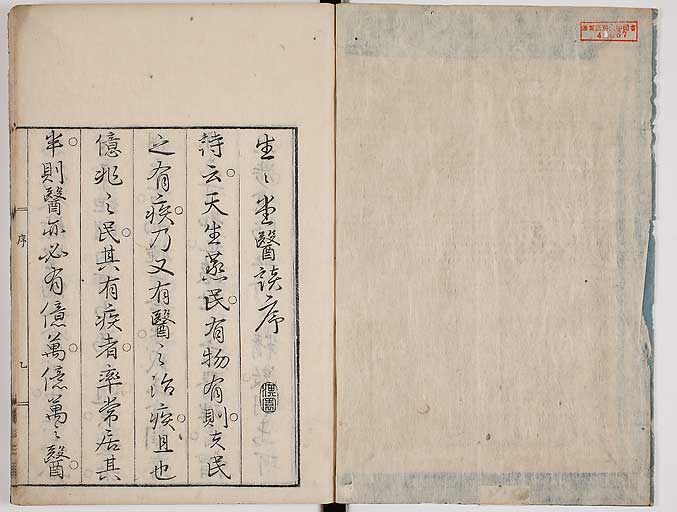 生〻堂醫談序
詩云天生蒸民有物有則夫民
之有疾乃又有醫之治疾且也
億兆之民其有疾者率常居其
半則醫亦必有億萬億萬之醫
序